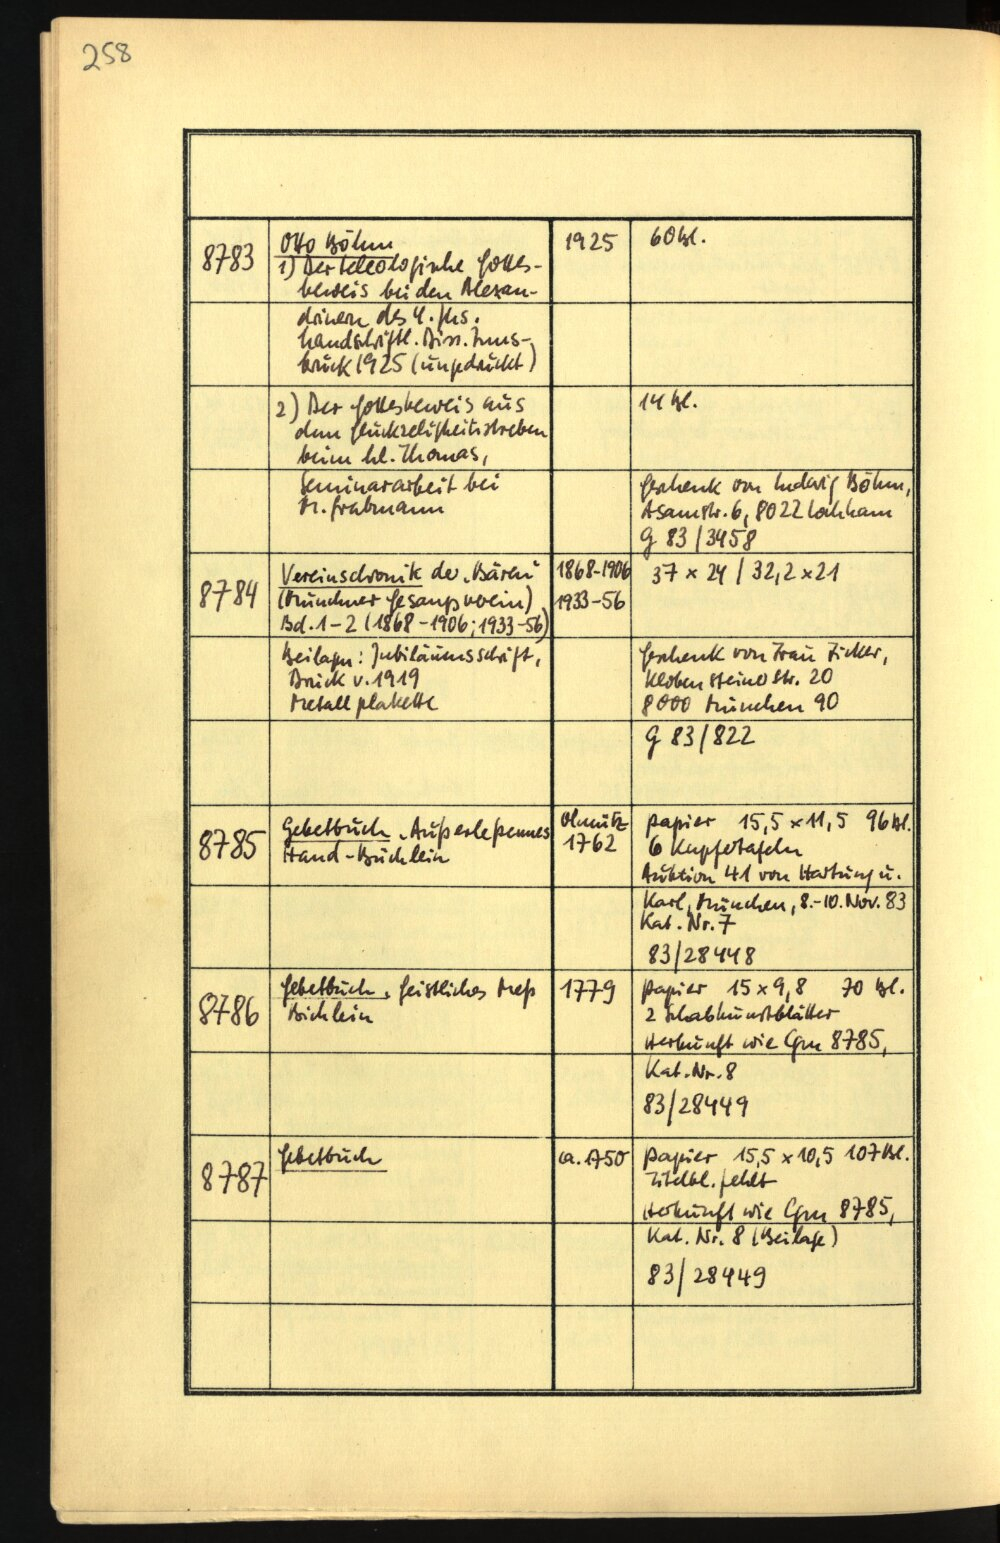 258
8783
Otto Böhm
1) Der teleologische Gottes-
beweis bei den Alexan-
drinern des 4. Jhs.
handschriftl. Diss. Inns-
bruck 1925 (ungedruckt)
1925
60 Bl.
2) Der Gottesbeweis aus
dem Glückseligkeitsstreben
beim hl. Thomas,
Seminararbeit bei
M. Grabmann
14 Bl.
Geschenk von Ludwig Böhm,
Asamstr. 6, 8022 Lochham
G 83/3458
8784
Vereinschronik der "Bären"
(Münchner Gesangsverein)
Bd. 1-2 (1868-1906; 1933-56)
1868-1906
1933-56
37 x 24 / 32,2 x 21
Beilagen: Jubiläumsschrift,
Druck v. 1919
Metallplakette
Geschenk von Frau Ficker,
Klobensteiner Str. 20
8000 München 90
G 83/822
8785
Gebetbuch "Außerleßennes
Hand-Büchlein
Olmütz
1762
Papier 15,5 x 11,5 96 Bl.
6 Kupfertafeln
Auktion 41 von Hartung u.
Karl, München, 8.-10. Nov. 83
Kat. Nr. 7
83/28448
8786
Gebetbuch, Geistliches Meß
Bichlein
1779
Papier 15 x 9,8 70 Bl.
2 Schabkunstblätter
Herkunft wie Cgm 8785,
Kat. Nr. 8
83/28449
8787
Gebetbuch
ca. 1750
Papier 15,5 x 10,5 107 Bl.
Titelbl. fehlt
Herkunft wie Cgm 8785,
Kat. Nr. 8 (Beilage)
83/28449